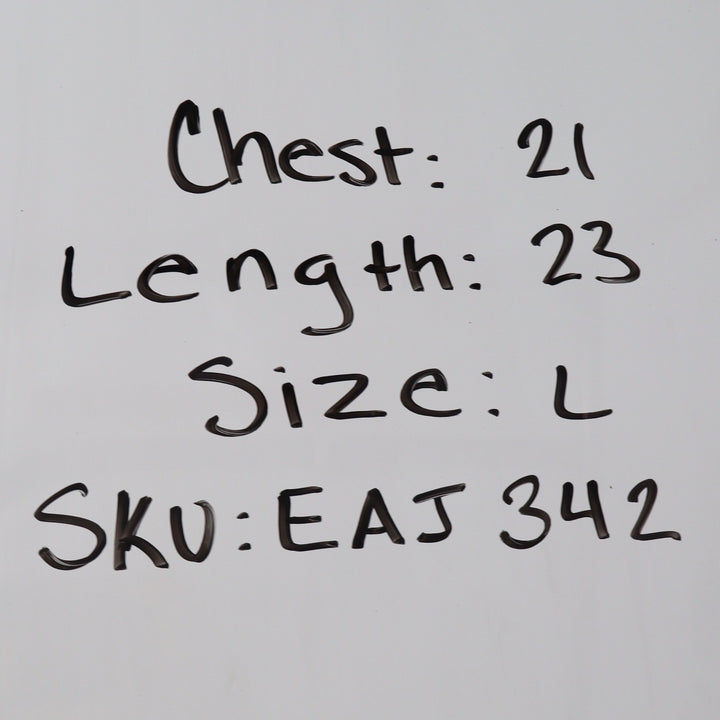 Chest: 21
Length: 23
Size: L
SKU: EAJ 342